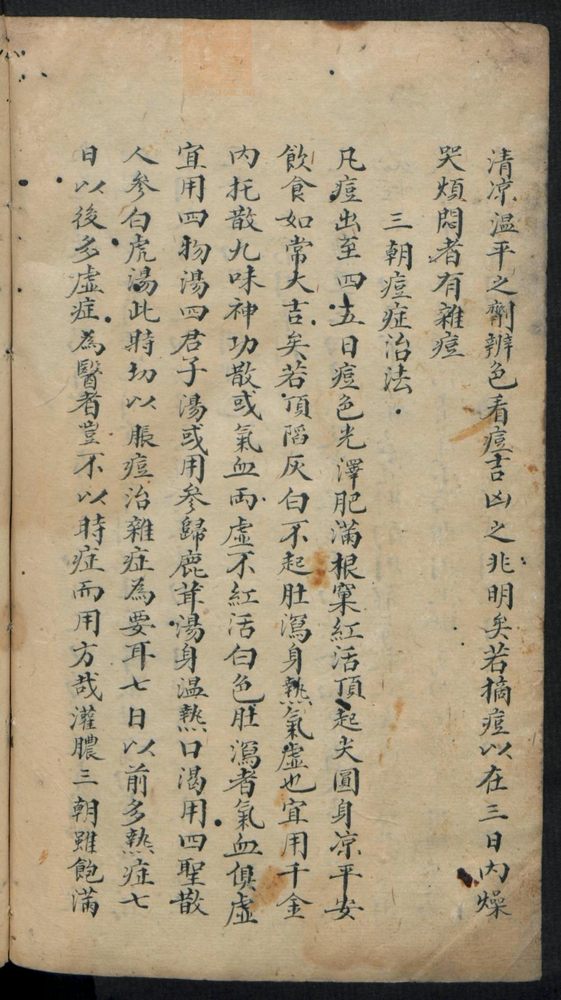 清凉温平之劑辨色看痘吉凶之兆明矣若摘痘以在三日内燥
哭煩悶者有雜痘
三朝痘症治法
凡痘出至四五日痘色光澤肥滿根窠紅活頂起尖圓身凉平安
飲食如常大吉矣若頂陷灰白不起肚瀉身熱氣虚也宜用千金
内托散九味神功散或氣血両虚不紅活白色肚瀉者氣血俱虚
宜用四物湯四君子湯或用參歸鹿茸湯身温熱口渴用四聖散
人參白虎湯此時切以脹痘治雜症為要耳七日以前多熱症七
日以後多虚症為醫者豈不以時症而用方哉灌膿三朝雖飽滿